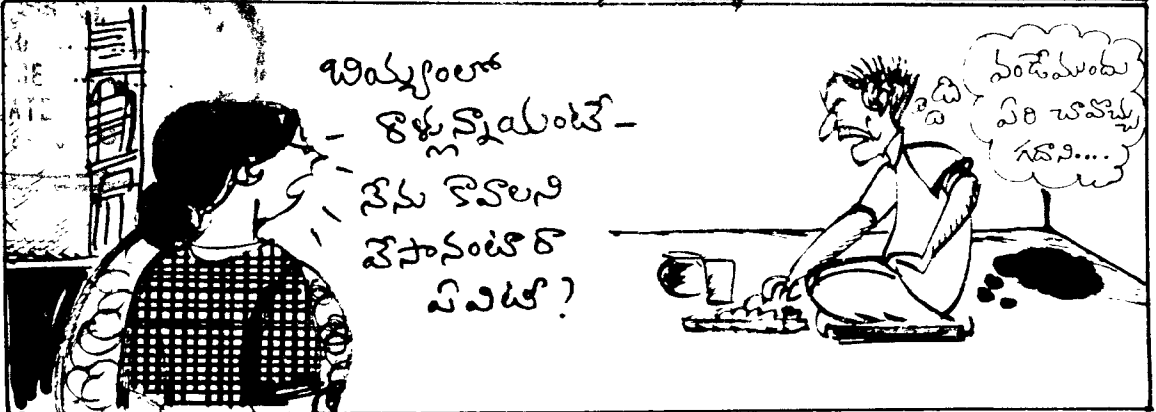 బియ్యంలో
రాళ్లున్నాయంటే-
నేను కావాలని
వేసానంటారా
ఏవిటి?
వండేముందు
ఏరి చావొచ్చు
గదాని....